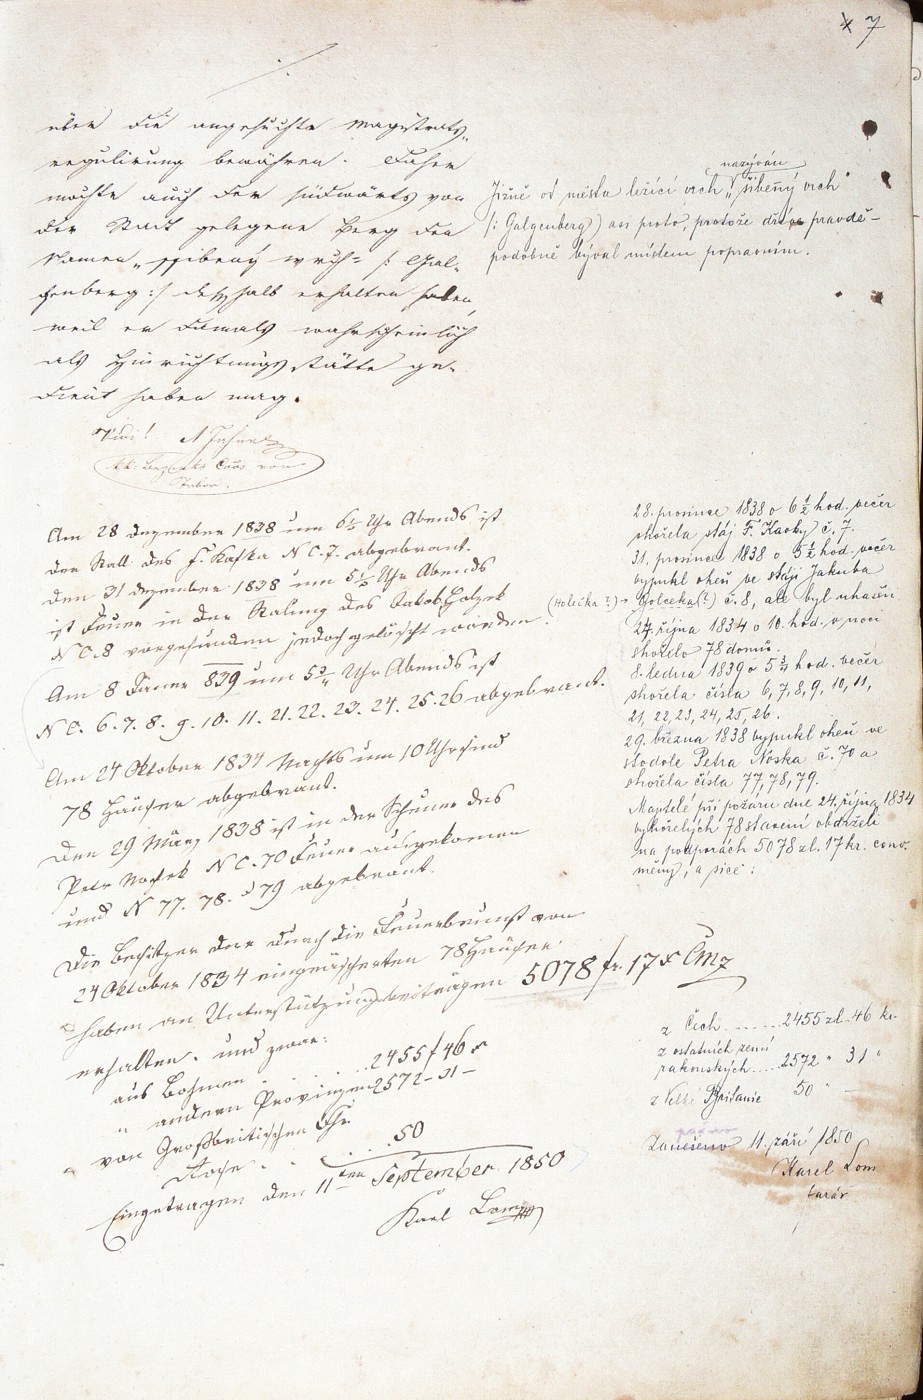 7
über die angesuchte Magistrats„
regulirung bewähren. Daher
mochte auch der südwärts von
der Stadt gelegene Berg den
Namen „ssibený wrch“ /: Gal„
genberg :/ desshalb erhalten haben,
weil er damals wahrscheinlich
als Hinrichtungsstätte ge„
dient haben mag.
Vidi!
kk: Bezirks Coös von
Tabor.
Am 28 Dezember 1838 um 6½ Uhr Abends ist
der Stall des F. Kafka N C. 7. abgebrant.
Den 31 Dezember 1838 um 5½ Uhr Abends
ist Feuer in der Stalung des Jakob Holzek
N C. 8 vorgefunden jedoch gelöscht worden.
Am 8 Jäner 839 um 5¾ Uhr Abends ist
N C. 6. 7. 8. 9. 10. 11. 21. 22. 23. 24. 25. 26 abgebrant.
Am 24 Oktober 1834 Nachts um 10 Uhr sind
78 Häuser abgebrant.
Den 29 März 1838 ist in der Scheuer des
Petr Nosek N C. 70 Feuer ausgekomen
und N 77. 78. d 79 abgebrant.
Die Besitzer der durch die Feuerbrunst von
24 Oktober 1834 eingeäscherten 78 Häuser
haben an Unterstützungsbeiträgen 5078 fr. 17 x CMz
erhalten. und zwar:
aus Böhmen . . . . . 2455 f 46 x
" andern Provinzen 2572 - 31 -
" von Großbritischen
. . . 50
Eingetragen den 11ten September 1850
Karl Lom
nazýván
Jižně od města ležící vrch „šibený vrch“
/: Galgenberg) asi proto, protože dříve pravdě-
podobně býval místem popravním.
28. prosince 1838 o 6½ hod. večer
shořela stáj F. Kavky č. 7.
31. prosince 1838 o 5½ hod. večer
vypukl oheň ve stáji Jakuba
(Holečka?) → Golečka(?) č. 8, ale byl uhašen
24. října 1834 o 10. hod. v noci
shořelo 78 domů.
8. ledna 1839 o 5¾ hod. večer
shořela čísla 6, 7, 8, 9, 10, 11,
21, 22, 23, 24, 25, 26.
29. března 1838 vypukl oheň ve
stodole Petra Noska č. 70 a
shořela čísla 77, 78, 79.
Majitelé při požáru dne 24. října 1834
vyhořelých 78 stavení obdrželi
na podporách 5078 zl. 17 kr. conv.
měny, a sice:
z Čech ....... 2455 zl. 46 kr.
z ostatních zemí
rakouských .... 2572 " 31 "
z Velké Britanie 50 " —
Zaneseno 11. září 1850
Karel Lom
farář